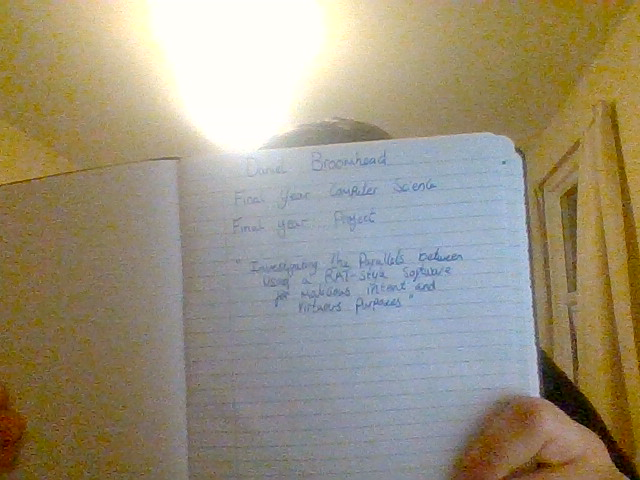 Daniel Broomhead
Final Year Computer Science
Final year Project
"Investigating The Parallels between
using a RAT-Style Software
for Malicious intent and
Virtuous purposes"